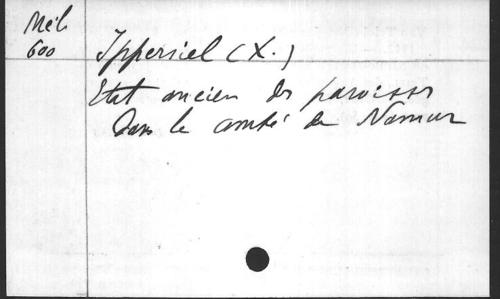 Mél.
600
Ippersiel (X.)
Etat ancien des paroisses
dans le comté de Namur